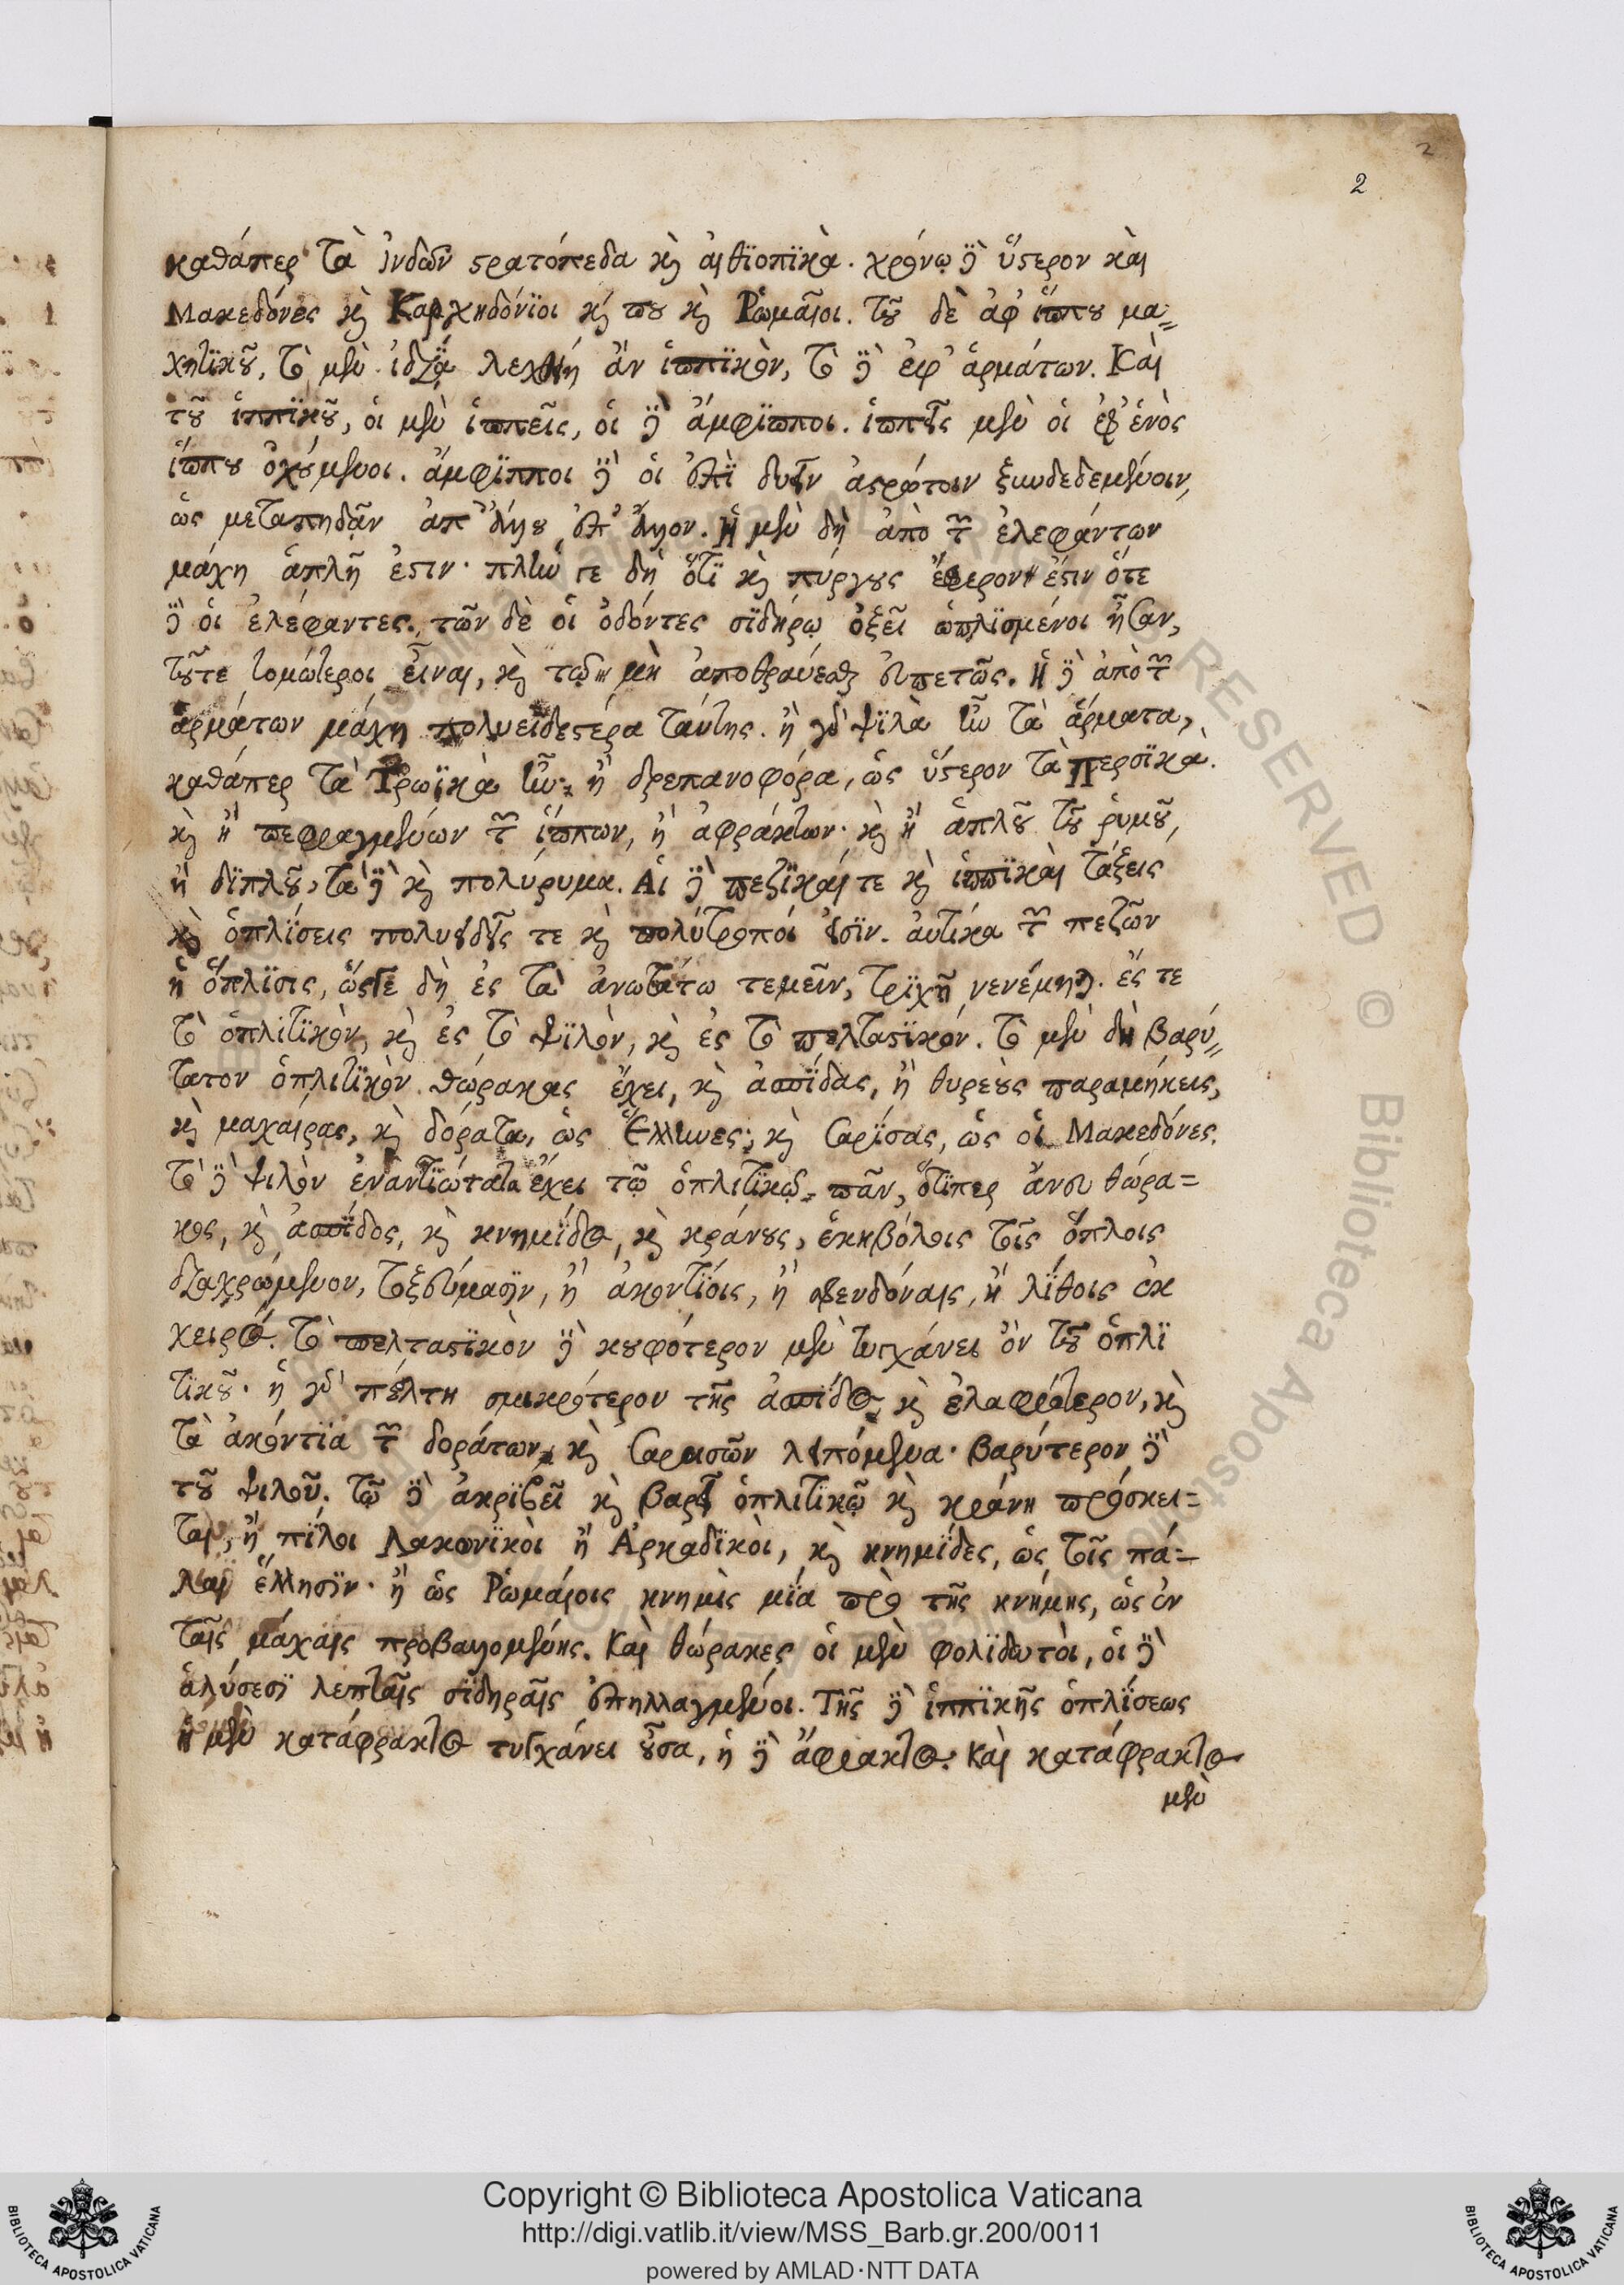 2
2
καθάπερ τὰ ἰνδῶν στρατόπεδα καὶ αἰθϊοπϊκὰ. χρόνῳ δὲ ὕστερον καὶ
Μακεδόνες καὶ Καρχηδόνϊοι καί που καὶ Ῥωμαῖοι. τοῦ δὲ ἀφ ἵππου μα=
χητϊκοῦ, τὸ μὲν ἰδίᾳ λεχθῄη ἂν ἱππϊκὸν, τὸ δὲ ἐφ ἁρμάτων. Καὶ
τοῦ ἱππϊκοῦ, οἱ μὲν ἱππεῖς, οἱ δὲ ἄμφϊπποι. ἱππεῖς μὲν οἱ ἐφ ἑνὸς
ἵππου ὀχούμενοι. ἄμφϊπποι δὲ οἱ ἐπῒ δυεῖν ἀστρώτοιν ξυνδεδεμένοιν,
ὡς μεταπηδᾷν ἀπ ἄλλου ἐπ ἄλλον. Ἡ μὲν δὴ ἀπὸ τῶν ἐλεφάντων
μάχη ἁπλῆ ἐστιν· πλὴν γε δὴ ὅτϊ καὶ πύργους ἔφερον ἔστιν ὅτε
δὲ οἱ ἐλέφαντες. τῶν δὲ οἱ ὀδόντες σϊδήρῳ ὀξεῖ ὡπλϊσμένοι ἦσαν,
τοῦτε τομώτεροι εἶναι, καὶ τῷ μὴ ἀποθραύεσθαι εὐπετῶς. Ἡ δὲ ἀπὸ τῶν
ἁρμάτων μάχη πολυειδεστέρα ταύτης. ἢ γὰρ ψϊλὰ ἦν τὰ ἅρματα,
καθάπερ τὰ Τρωϊκὰ ἦν· ἢ δρεπανοφόρα, ὡς ὕστερον τὰ Περσϊκὰ.
καὶ ἢ πεφραγμένων τῶν ἵππων, ἢ ἀφράκτων· καὶ ἢ ἁπλοῦ τοῦ ῥυμοῦ,
ἢ δϊπλοῦ, τὰ δὲ καὶ πολύρυμα. Αἱ δὲ πεζϊκαί τε καὶ ἱππϊκαὶ τάξεις
καὶ ὁπλΐσεις πολυειδεῖς τε καὶ πολύτροποί εἰσϊν. αὐτίκα τῶν πεζῶν
ἡ ὅπλϊσις, ὥςγε δὴ ἐς τὰ ἀνωτάτω τεμεῖν, τρϊχῆ νενέμηται. ἔς τε
τὸ ὁπλιτϊκὸν, καὶ ἐς τὸ ψϊλὸν, καὶ ἐς τὸ πελταστϊκόν. τὸ μὲν δὴ βαρύ=
τατον ὁπλιτϊκὸν θώρακας ἔχει, καὶ ἀσπΐδας, ἢ θυρεοὺς παραμήκεις,
καὶ μαχαίρας, καὶ δόρατα, ὡς Ἕλληνες· καὶ Σαρΐσας, ὡς οἱ Μακεδόνες.
τὸ δὲ ψιλὸν ἐναντϊώτατα ἔχει τῷ ὁπλιτϊκῷ πᾶν, ὅτϊπερ ἄνευ θώρα=
κος, καὶ ἀσπΐδος, καὶ κνημῖδος, καὶ κράνους, ἑκηβόλοις τοῖς ὅπλοις
διαχρώμενον, τοξεύμασϊν, ἢ ἀκοντΐοις, ἢ σφενδόναις, ἢ λΐθοις ἐκ
χειρός. τὸ πελταστϊκὸν δὲ κουφότερον μὲν τυγχάνει ὂν τοῦ ὁπλϊ
τϊκοῦ· ἡ γὰρ πέλτη σμικρότερον τῆς ἀσπΐδος καὶ ἐλαφρότερον, καὶ
τὰ ἀκόντϊα τῶν δοράτων καὶ Σαρισῶν λειπόμενα· βαρύτερον δὲ
τοῦ ψιλοῦ. τῷ δὲ ἀκρϊβεῖ καὶ βαρεῖ ὁπλιτϊκῷ καὶ κράνη πρόσκει=
ται, ἢ πῖλοι Λακωνϊκοὶ ἢ Ἀρκαδϊκοὶ, καὶ κνημΐδες, ὡς τοῖς πά=
λαι ἕλλησϊν· ἢ ὡς Ῥωμαίοις κνημὶς μΐα πρὸ τῆς κνήμης, ὡς ἐν
ταῖς μάχαις προβαλλομένης. Καὶ θώρακες οἱ μὲν φολϊδωτοὶ, οἱ δὲ
ἁλύσεσϊ λεπταῖς σϊδηραῖς ἐπηλλαγμένοι. Τῆς δὲ ἱππϊκῆς ὁπλΐσεως
ἡ μὲν κατάφρακτος τυγχάνει οὖσα, ἡ δὲ ἄφρακτος. Καὶ κατάφρακτος
μὲν
RESERVED © Biblioteca Apostolica Vaticana
Copyright © Biblioteca Apostolica Vaticana
http://digi.vatlib.it/view/MSS_Barb.gr.200/0011
powered by AMLAD·NTT DATA
BIBLIOTECA APOSTOLICA VATICANA
BIBLIOTECA APOSTOLICA VATICANA